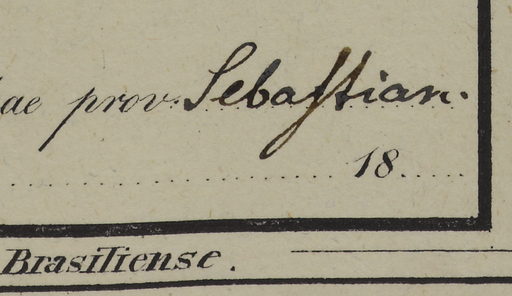 ae prov. Sebastian.
18
Brasiliense.